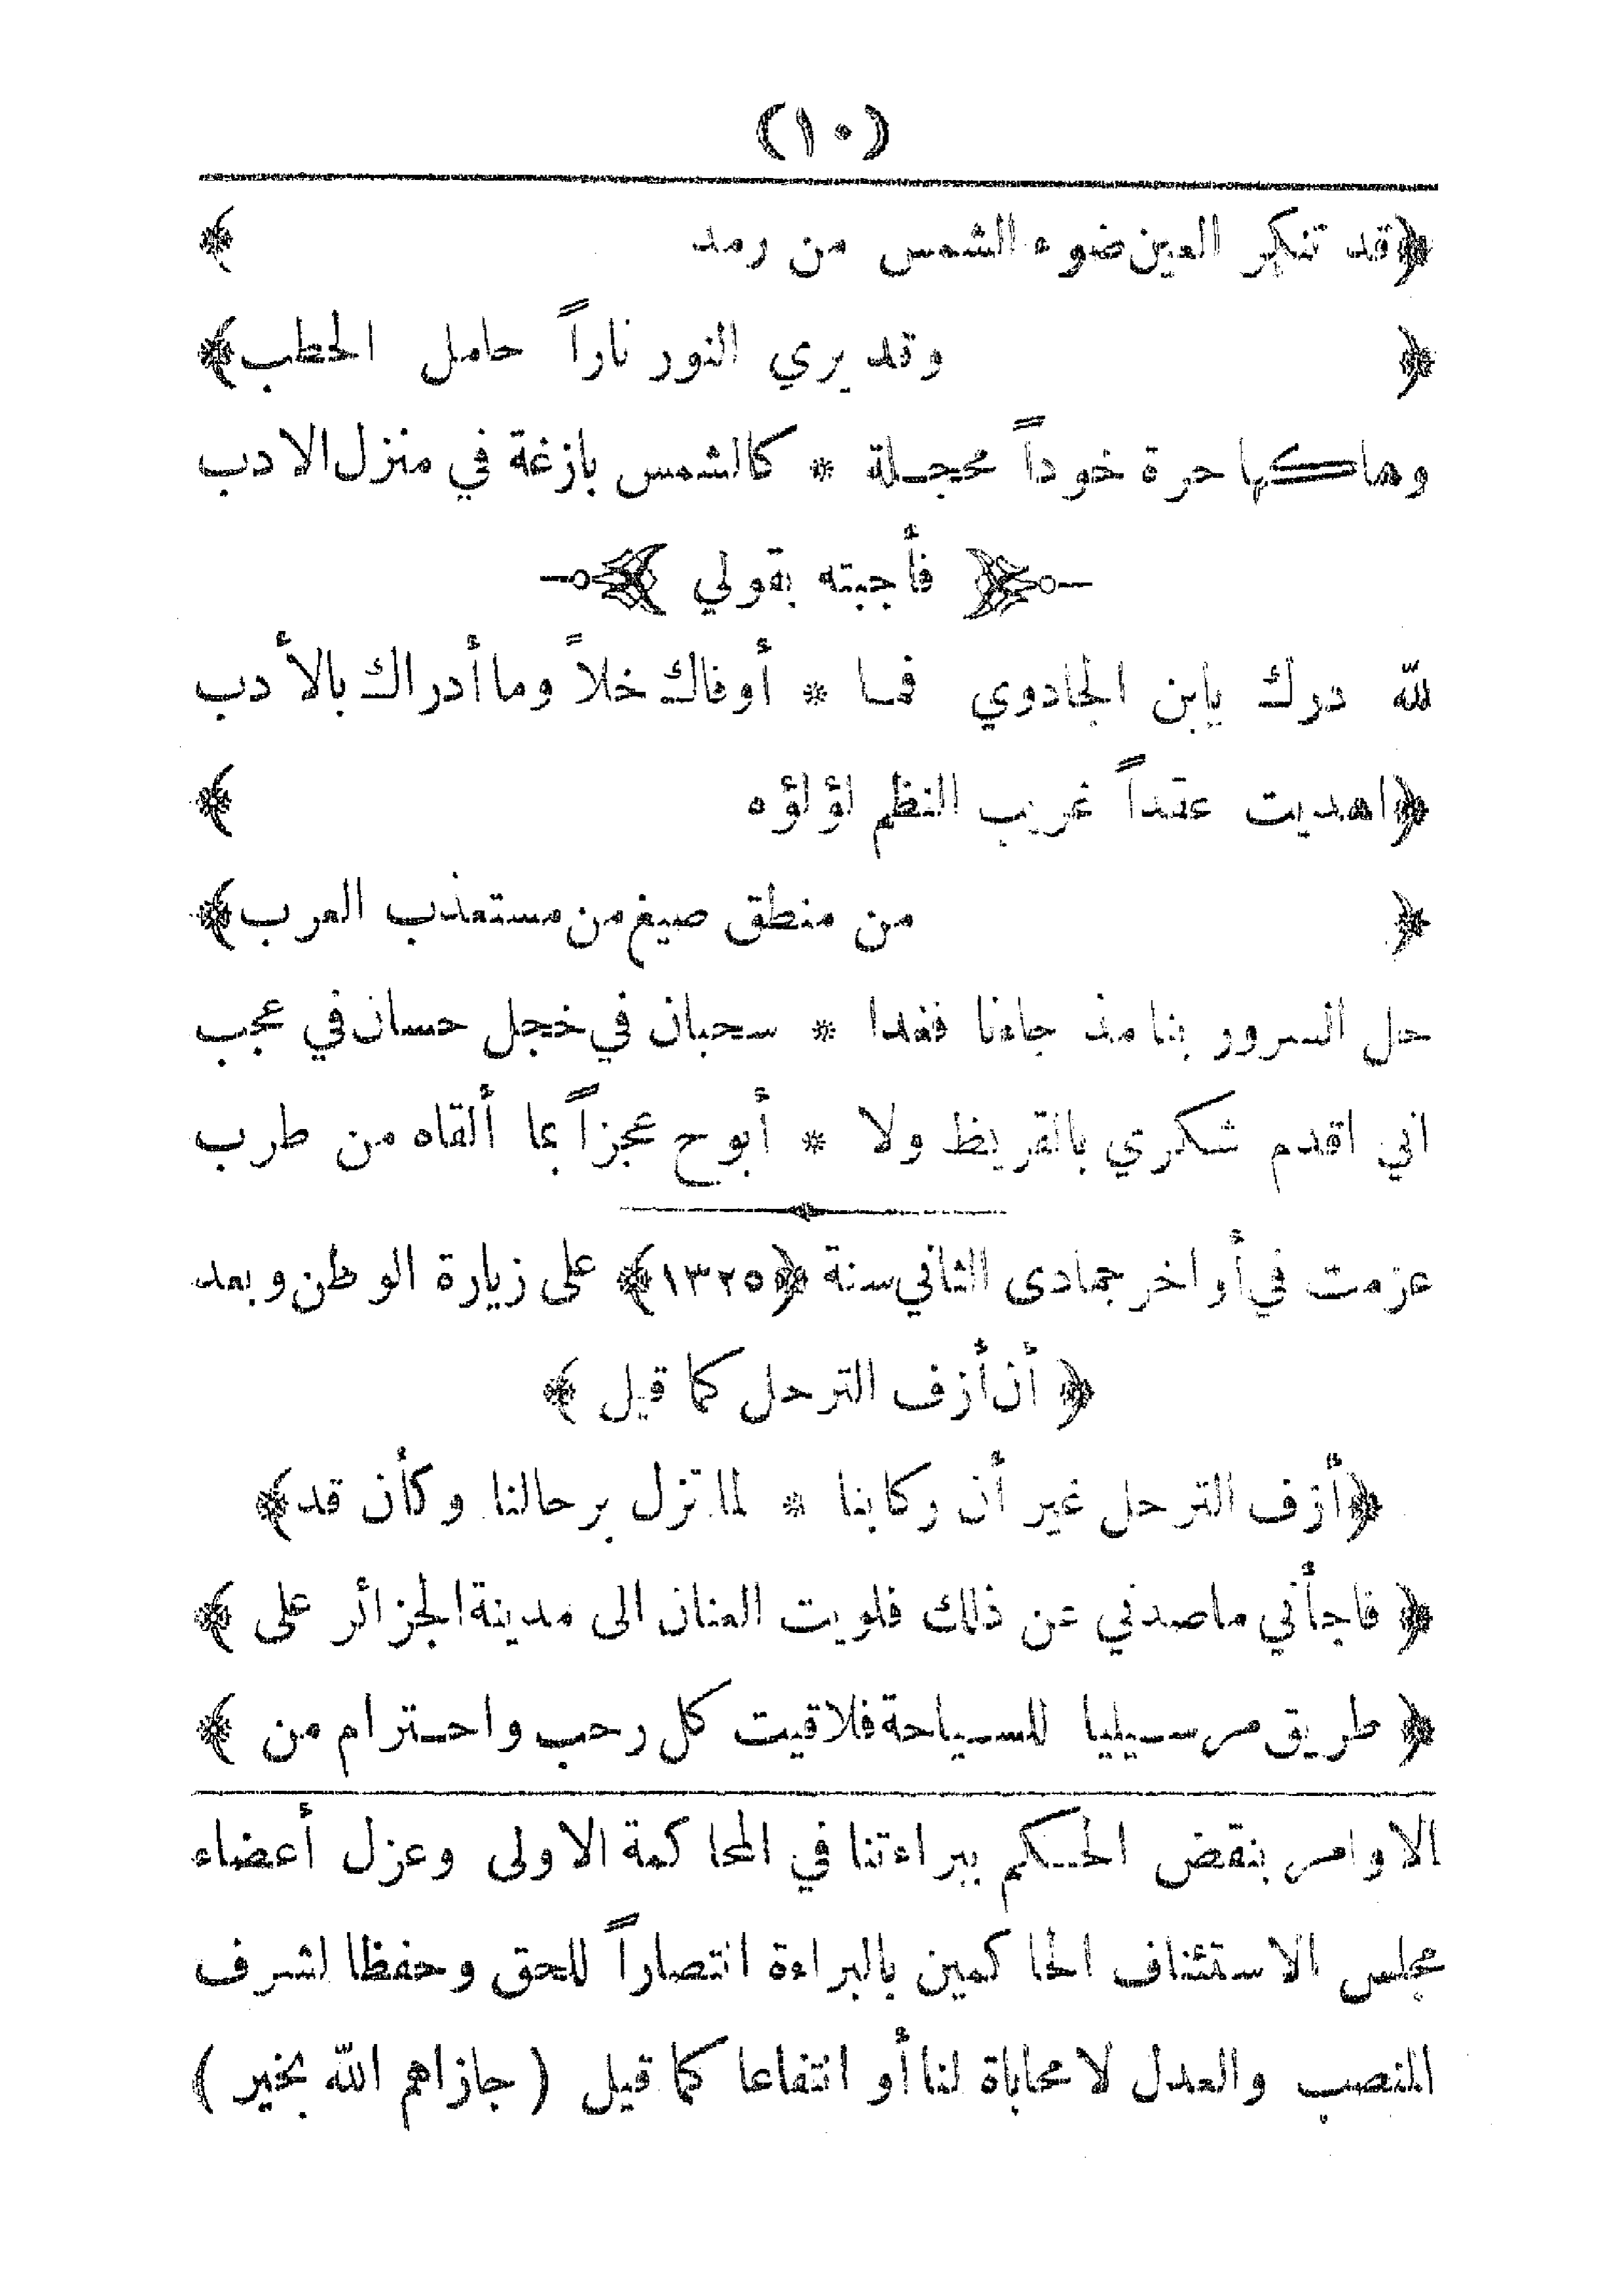 (١٠)
﴿قد تنكر العين ضوء الشمس من رمد ﴾
﴿ وقد يري النور ناراً حامل الحطب﴾
وهاكها حرة خوداً محجلة * كالشمس بازغة في منزل الادب
﴿ فأجبته بقولي ﴾
لله درك يابن الجادوي فما * أوفاك خلاً وما أدراك بالأدب
﴿اهديت عقداً غريب النظم لؤلؤه ﴾
﴿ من منطق صيغ من مستعذب العرب﴾
حل السرور بنا مذ جاءنا فغدا * سحبان في خجل حسان في عجب
اني اقدم شكري بالقريظ ولا * أبوح عجزاً بما ألقاه من طرب
عزمت في أواخر جمادى الثاني سنة ﴿١٣٢٥﴾ على زيارة الوطن وبعد
﴿ أن أزف الترحل كما قيل ﴾
﴿أزف الترحل غير أن ركابنا * لما تزل برحالنا وكأن قد﴾
﴿ فاجأني ماصدني عن ذلك فلويت العنان الى مدينة الجزائر على ﴾
﴿ طريق مرسيليا للسياحة فلاقيت كل رحب واحترام من ﴾
الاوامر بنقض الحكم ببراءتنا في المحاكمة الاولى وعزل أعضاء
مجلس الاستئناف الحاكمين بالبراءة انتصاراً للحق وحفظا لشرف
المنصب والعدل لا محاباة لنا أو انتفاعا كما قيل ( جازاهم الله بخير )